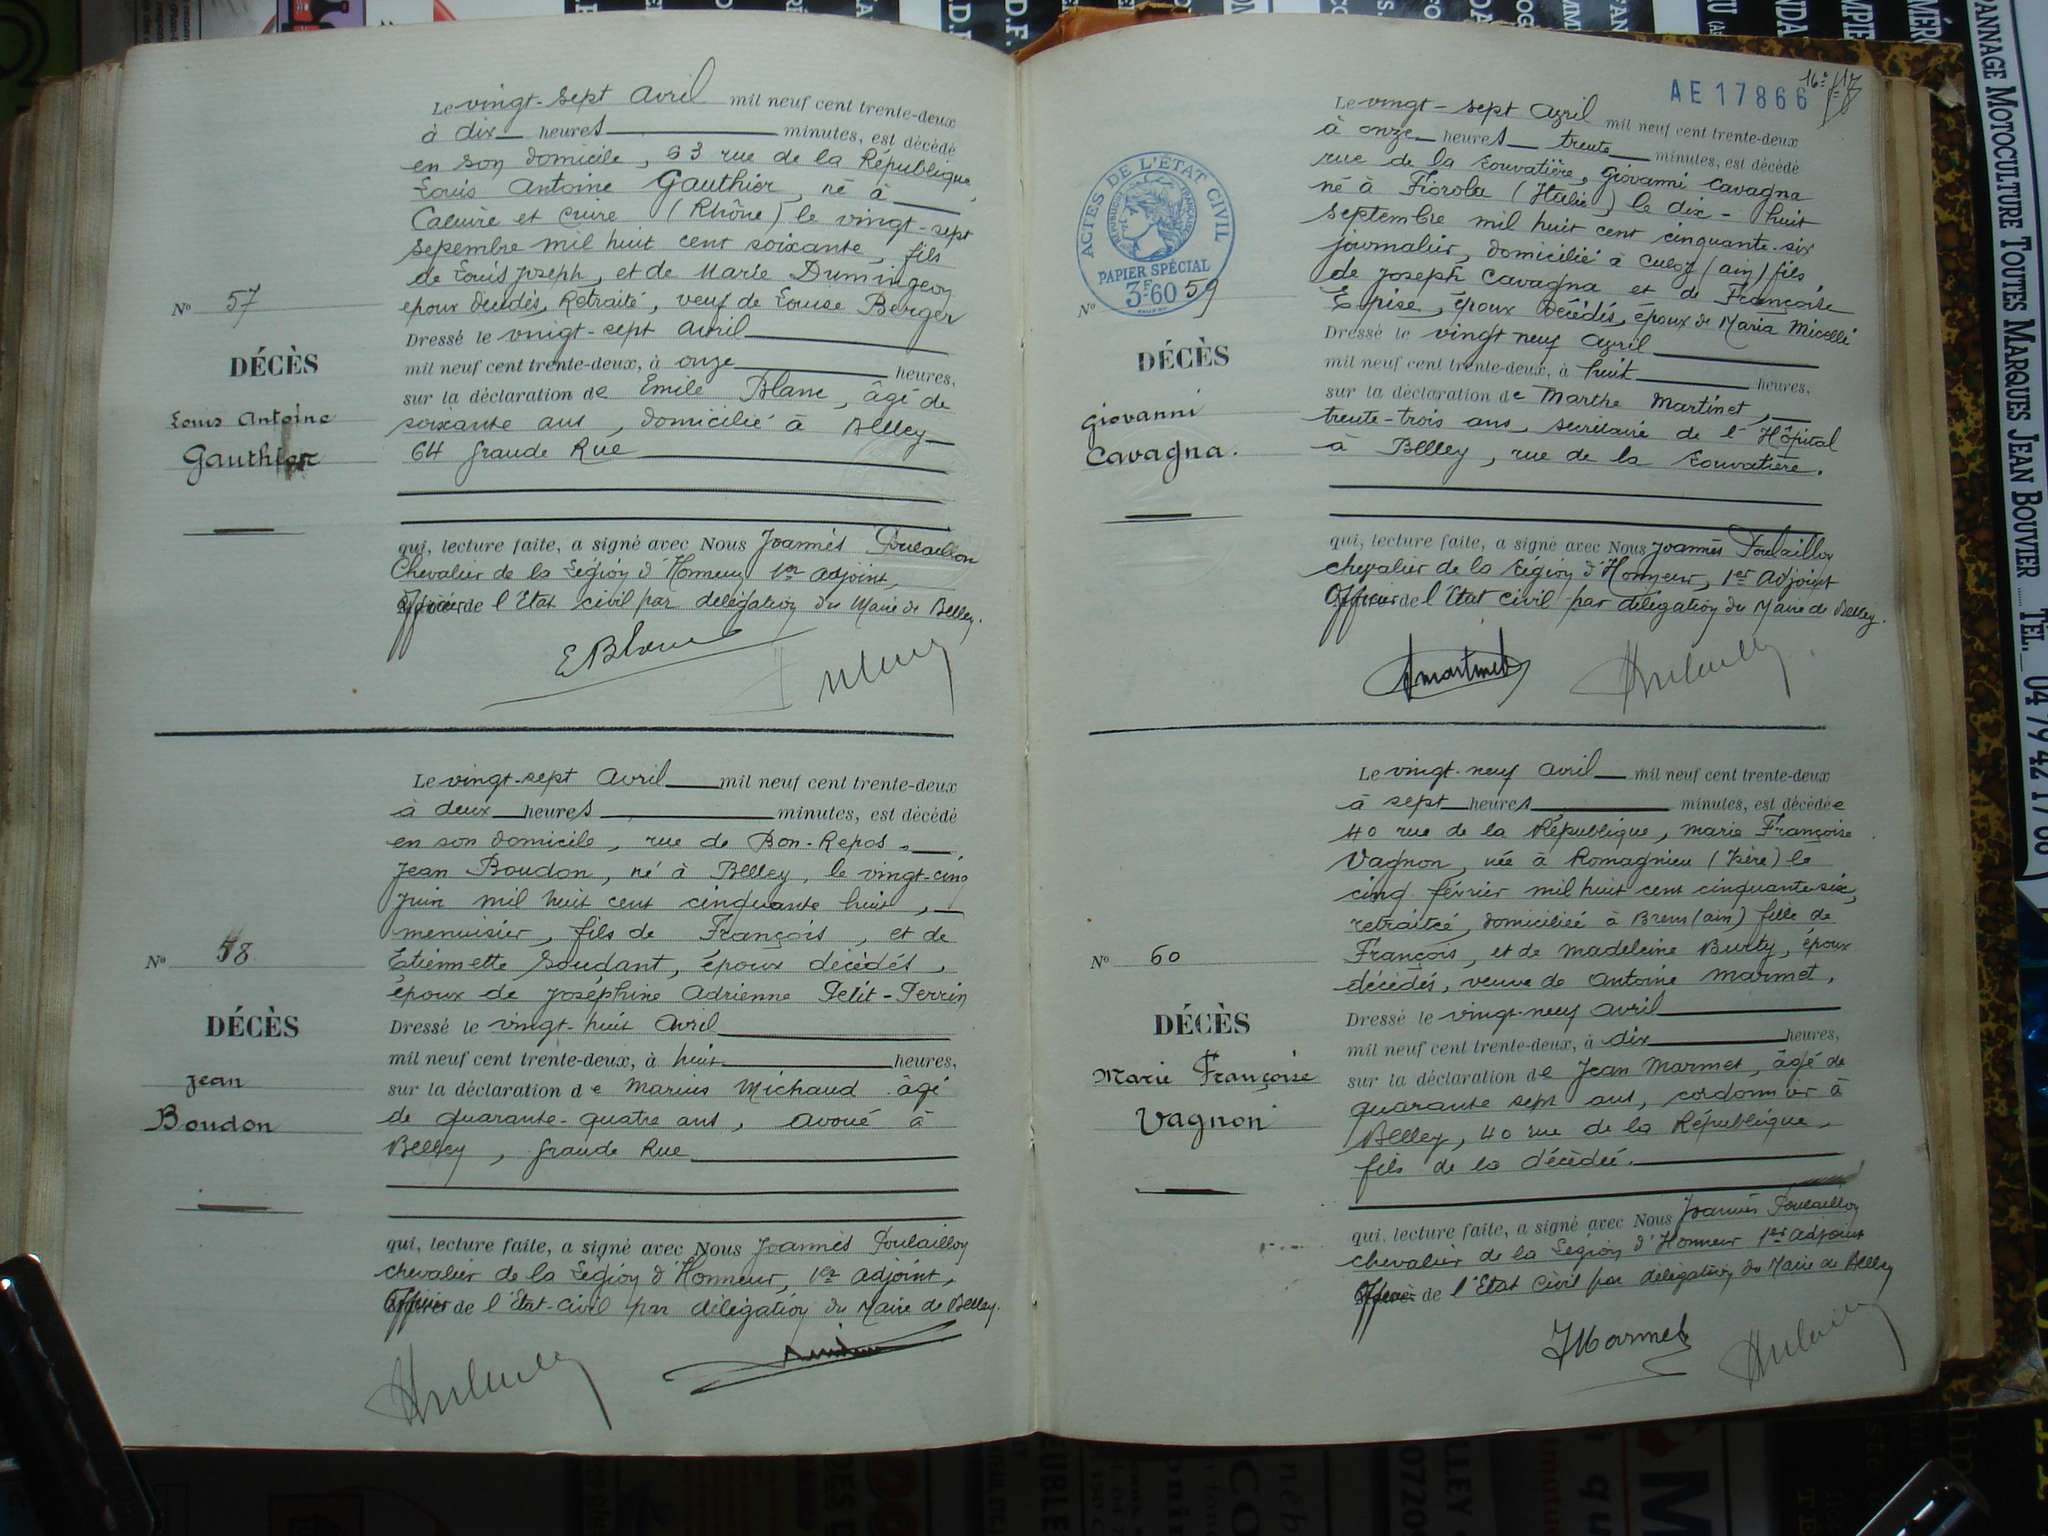 Le vingt-sept avril mil neuf cent trente-deux
à dix heures minutes, est décédé
en son domicile, 63 rue de la République
Louis Antoine Gauthier, né à
Caluire et Cuire (Rhône) le vingt-sept
sepembre mil huit cent soixante, fils
de Louis Joseph, et de Marie Dumingeon
époux décédés, Retraité, veuf de Louise Berger
Dressé le vingt-sept avril
mil neuf cent trente-deux, à onze heures,
sur la déclaration de Emile Blanc, âgé de
soixante ans, domicilié à Belley
64 Grande Rue
qui, lecture faite, a signé avec Nous Joannès Poulaillon
Chevalier de la Légion d'Honneur 1er adjoint,
Officier de l'Etat civil par délégation du Maire de Belley.
EBlanc
No 57
DÉCÈS
Louis Antoine
Gauthier
Le vingt-sept avril mil neuf cent trente-deux
à deux heures minutes, est décédé
en son domicile, rue de Bon-Repos,
Jean Boudon, né à Belley, le vingt-cinq
Juin mil huit cent cinquante huit,
menuisier, fils de François, et de
Etiennette Soudant, époux décédés,
époux de Joséphine Adrienne Petit-Perrin
Dressé le vingt-huit avril
mil neuf cent trente-deux, à huit heures,
sur la déclaration de Marius Michaud âgé
de quarante-quatre ans, avoué à
Belley, Grande Rue
qui, lecture faite, a signé avec Nous Joannès Poulaillon
chevalier de la Légion d'Honneur, 1er adjoint,
Officier de l'Etat-civil par délégation du Maire de Belley.
No 58
DÉCÈS
Jean
Boudon
AE 17866
Le vingt-sept avril mil neuf cent trente-deux
à onze heures trente minutes, est décédé
rue de la Louvatière, Giovanni Cavagna
né à Fiorola (Italie) le dix-huit
septembre mil huit cent cinquante-six
journalier, domicilié à Culoz (ain) fils
de Joseph Cavagna et de Françoise
Epise, époux décédés, époux de Maria Micelli
Dressé le vingt neuf avril
mil neuf cent trente-deux, à huit heures,
sur la déclaration de Marthe Martinet,
trente-trois ans, secrétaire de l'Hôpital
à Belley, rue de la Louvatière.
qui, lecture faite, a signé avec Nous Joannès Poulaillon
chevalier de la Légion d'Honneur, 1er adjoint
Officier de l'Etat civil par délégation du Maire de Belley.
Martinet
ACTES DE L'ÉTAT CIVIL
RÉPUBLIQUE FRANÇAISE
PAPIER SPÉCIAL
3F.60
No 59
DÉCÈS
Giovanni
Cavagna.
Le vingt-neuf avril mil neuf cent trente-deux
à sept heures minutes, est décédée
40 rue de la République, Marie Françoise
Vagnon, née à Romagnieu (Isère) le
cinq février mil huit cent cinquante-six,
retraitée, domiciliée à Brens (ain) fille de
François, et de Madeleine Burty, époux
décédés, veuve de Antoine Marmet,
Dressé le vingt-neuf avril
mil neuf cent trente-deux, à dix heures,
sur la déclaration de Jean Marmet, âgé de
quarante sept ans, cordonnier à
Belley, 40 rue de la République,
fils de la décédée.
qui, lecture faite, a signé avec Nous Joannès Poulaillon
chevalier de la Légion d'Honneur 1er adjoint
Officier de l'Etat Civil par délégation du Maire de Belley
JMarmet
No 60
DÉCÈS
Marie Françoise
Vagnon
PANNAGE MOTOCULTURE TOUTES MARQUES JEAN BOUVIER ..... TÉL. 04 79 42 17 66